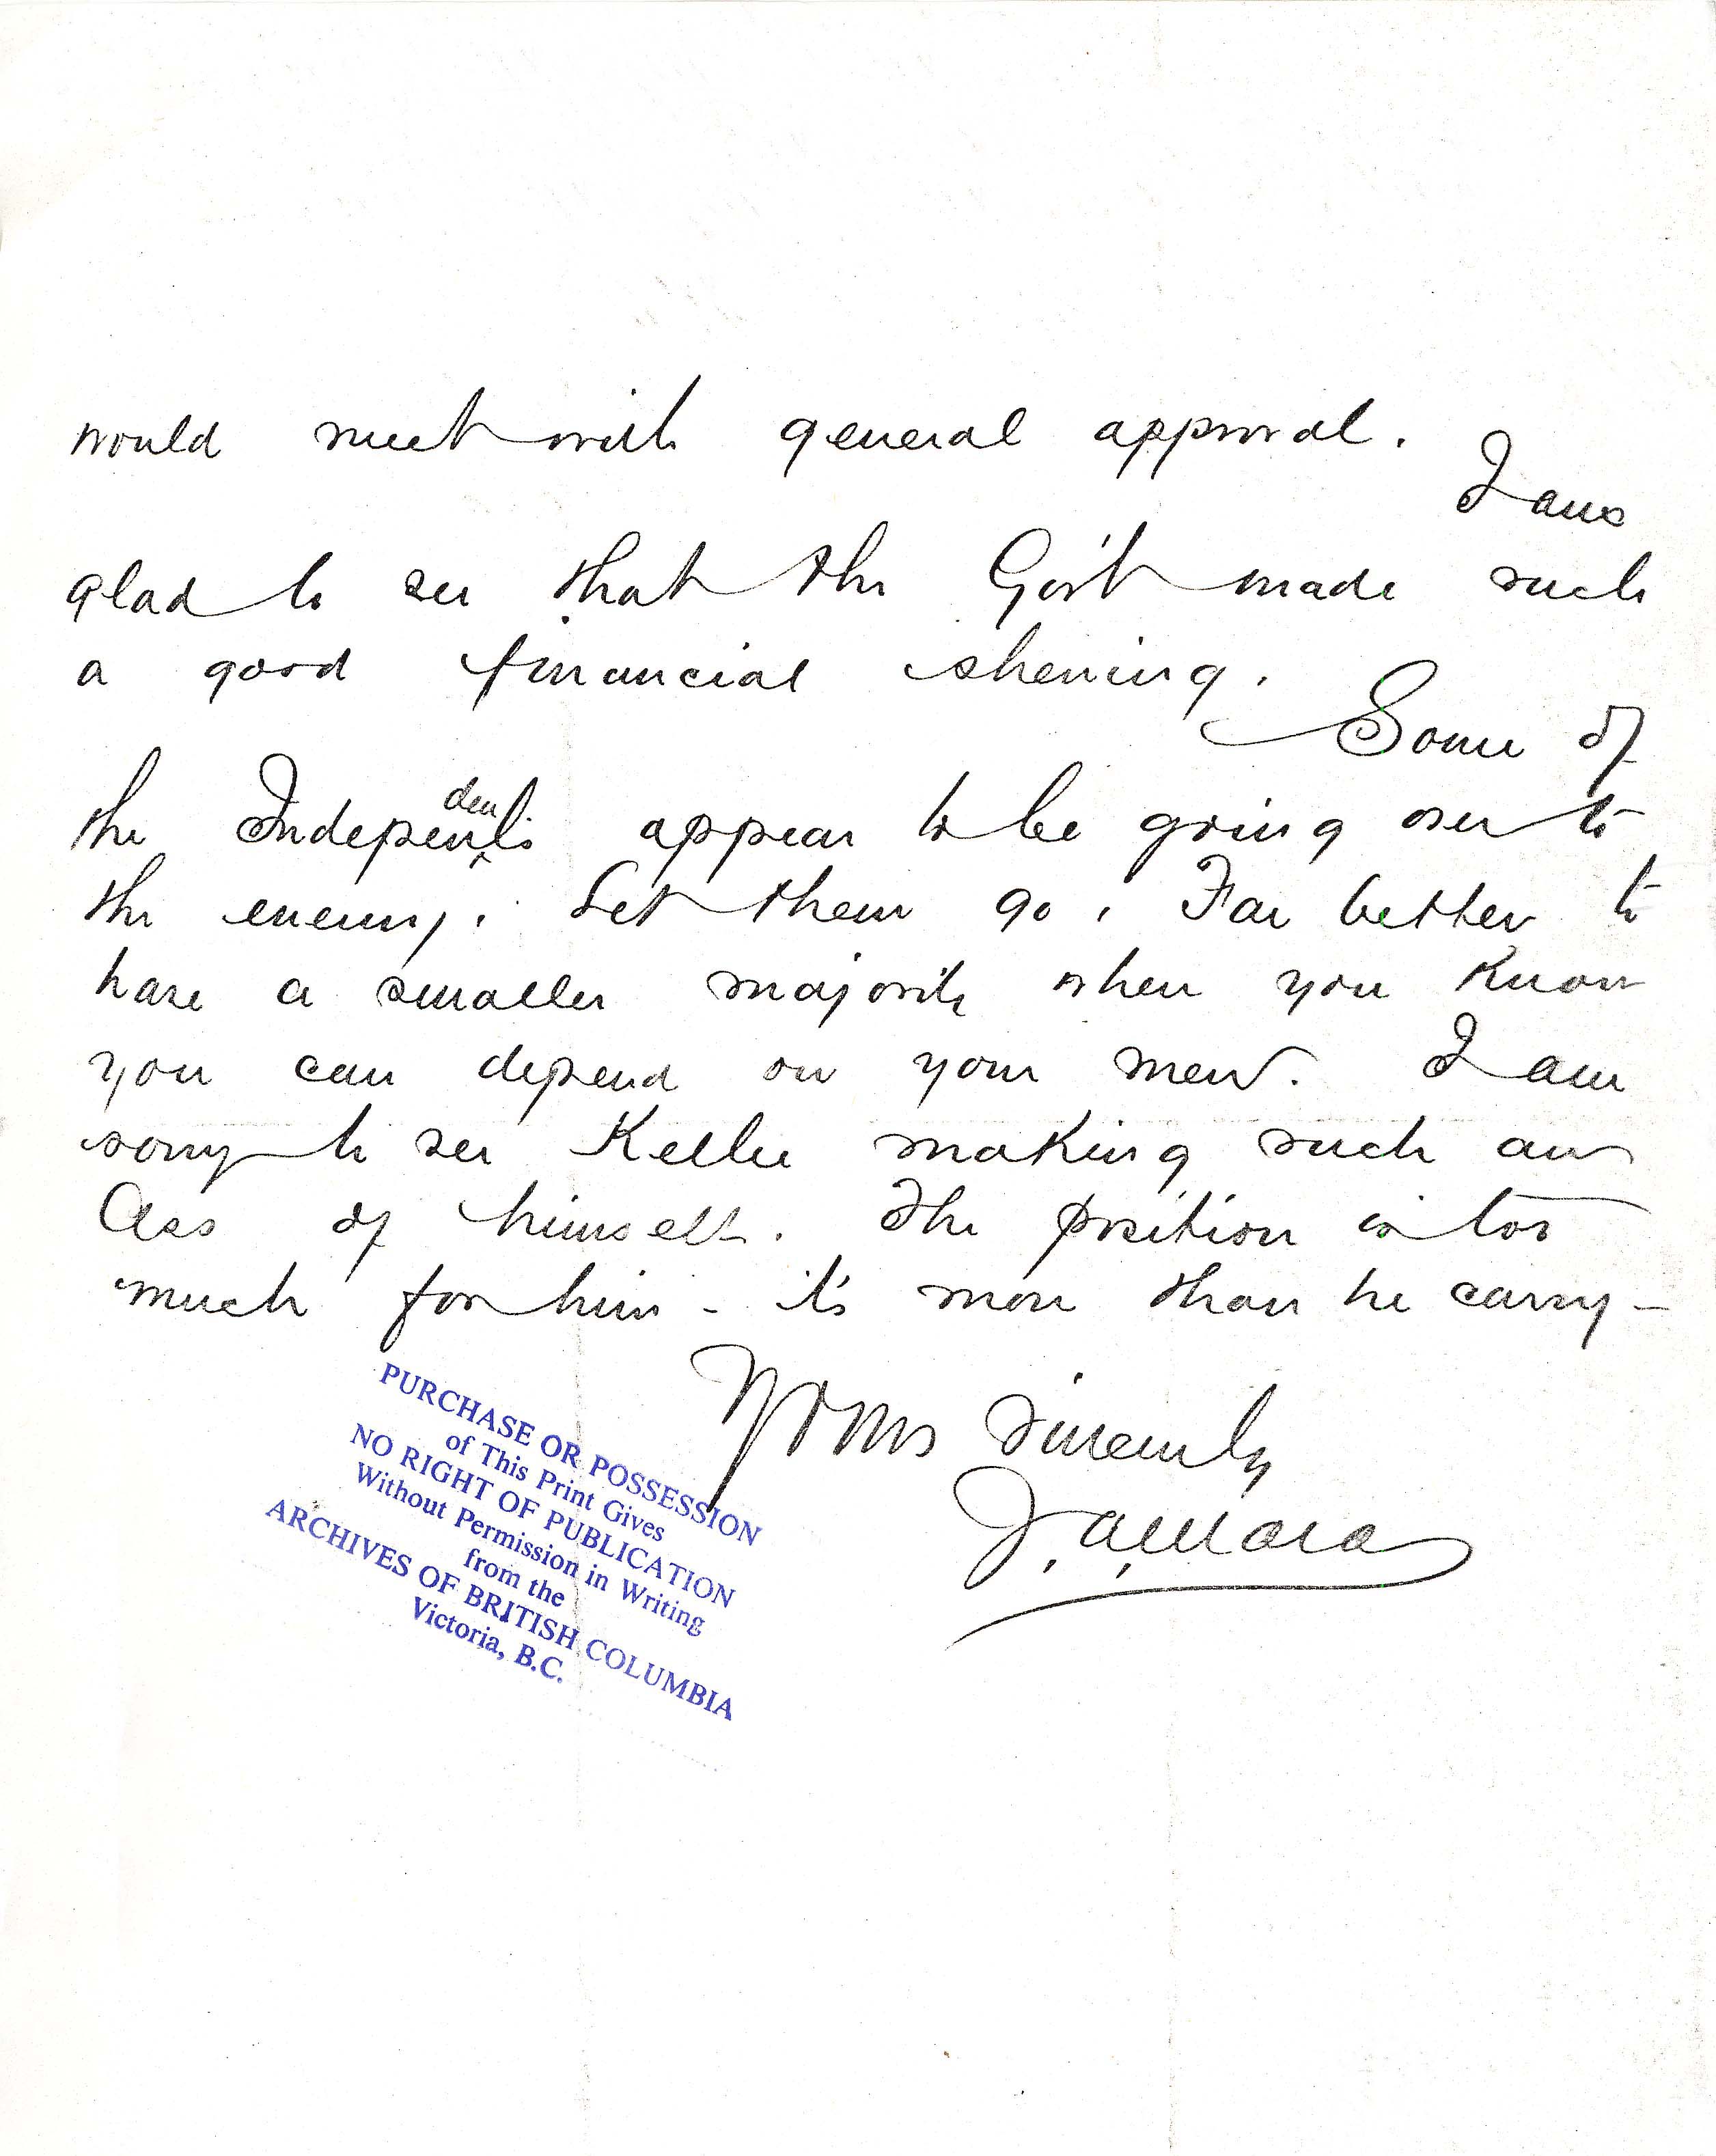 would meet with general approval.
I am
glad to see that the Gov't made such
a good financial shewing.
Some of
the Independents appear to be going over to
the enemy. Let them go. Far better to
have a smaller majority when you know
you can depend on your men. I am
sorry to see Kellie making such an
Ass of himself. The position is too
much for him - it's more than he carry -
Yours Sincerely
J. A. Mara
PURCHASE OR POSSESSION
of This Print Gives
NO RIGHT OF PUBLICATION
Without Permission in Writing
from the
ARCHIVES OF BRITISH COLUMBIA
Victoria, B.C.